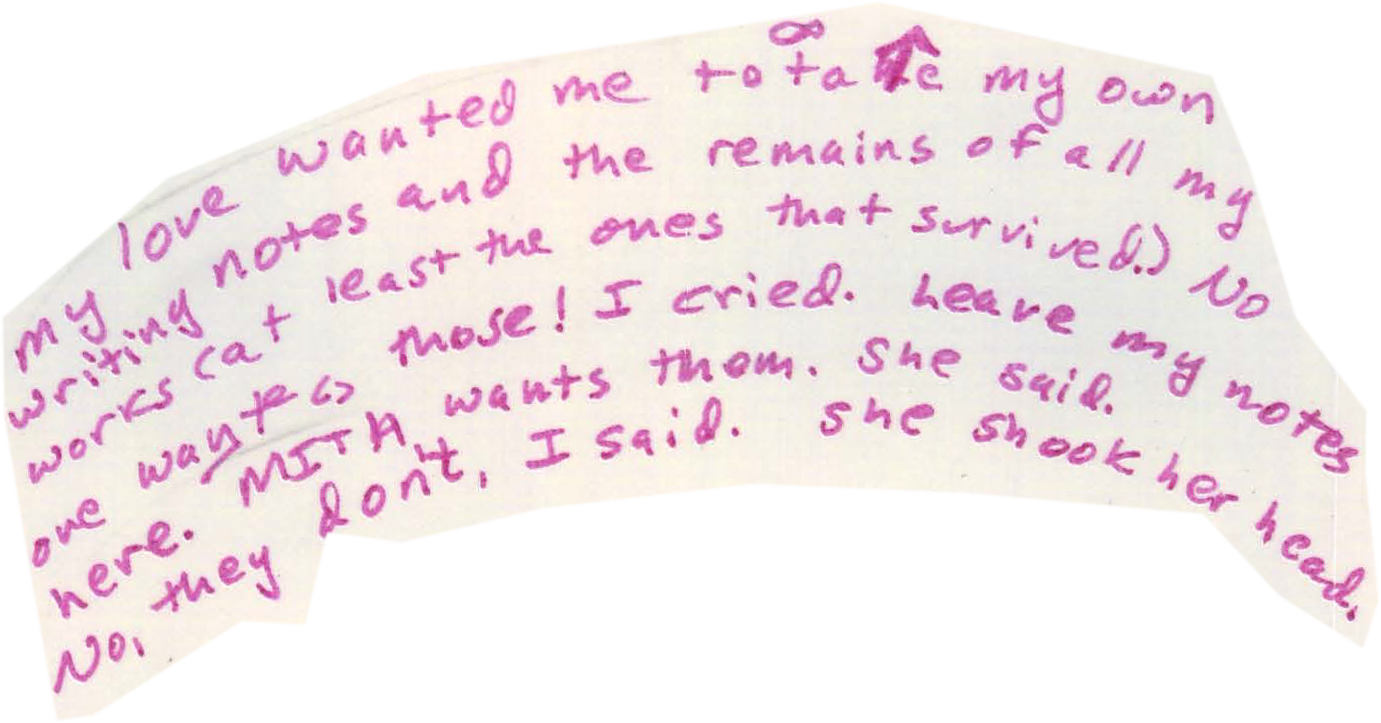 my love wanted me to take my own
writing notes and the remains of all my
works (at least the ones that survived.) No
one wants those! I cried. Leave my notes
here. MITH wants them. She said.
No, they don't, I said. She shook her head.